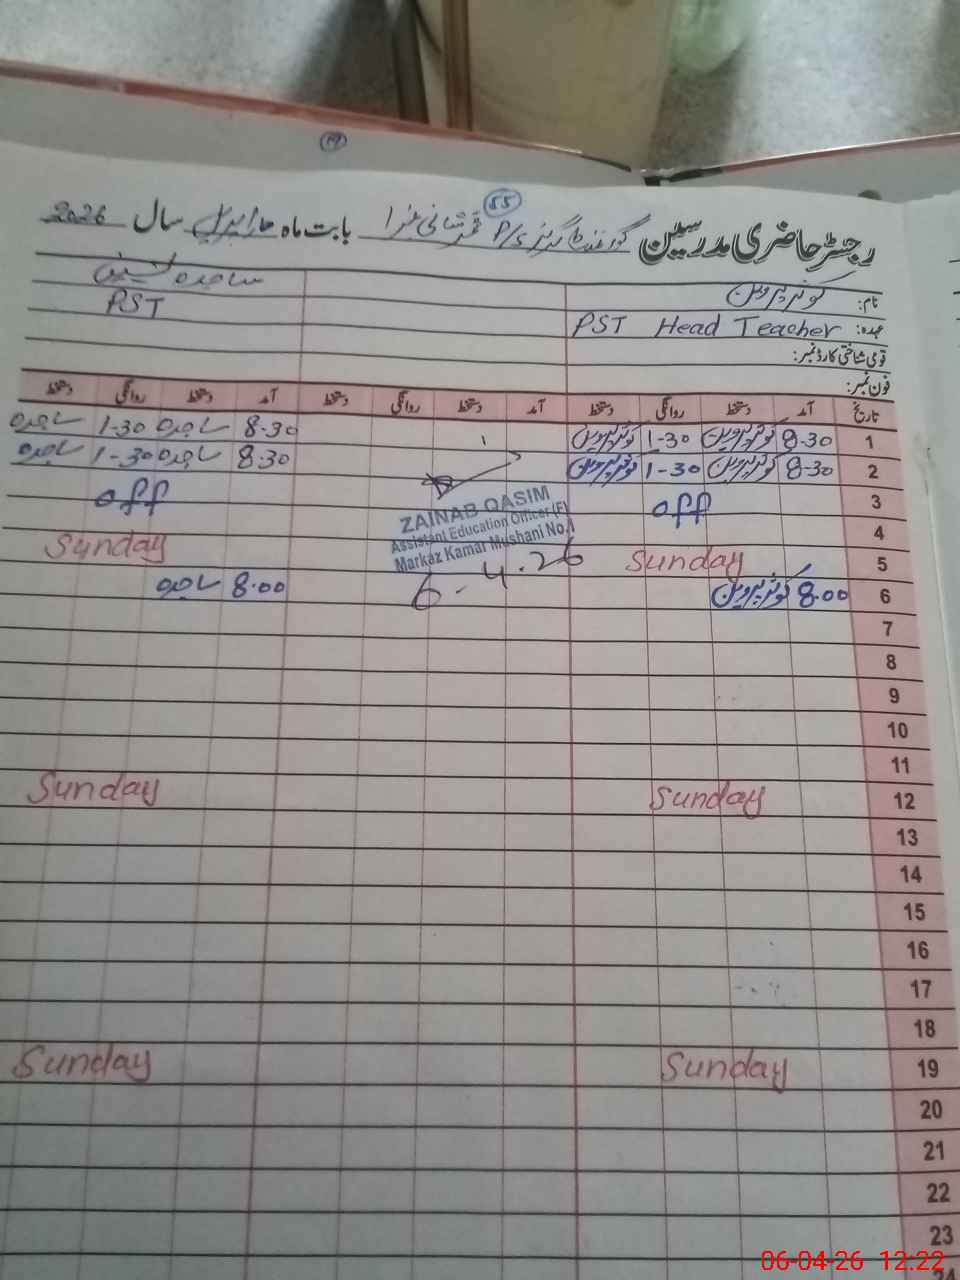 19
55
رجسٹر حاضری مدرسین گورنمنٹ گرلز P/S قمر مشانی نمبر 1 بابت ماہ اپریل سال 2026
نام: کوثر پروین ساجدہ
عہدہ: PST Head Teacher PST
قومی شناختی کارڈ نمبر:
فون نمبر:
تاریخ آمد دستخط روانگی دستخط آمد دستخط روانگی دستخط آمد دستخط روانگی دستخط
1 8-30 کوثر پروین 1-30 کوثر پروین 8-30 ساجدہ 1-30 ساجدہ
2 8-30 کوثر پروین 1-30 کوثر پروین 8-30 ساجدہ 1-30 ساجدہ
3 off off
ZAINAB QASIM
Assistant Education Officer (F)
Markaz Kamar Mushani No.1
6-4-26
4
5 Sunday Sunday
6 8.00 کوثر پروین 8.00 ساجدہ
7
8
9
10
11
12 Sunday Sunday
13
14
15
16
17
18
19 Sunday Sunday
20
21
22
23
24
06-04-26 12:22